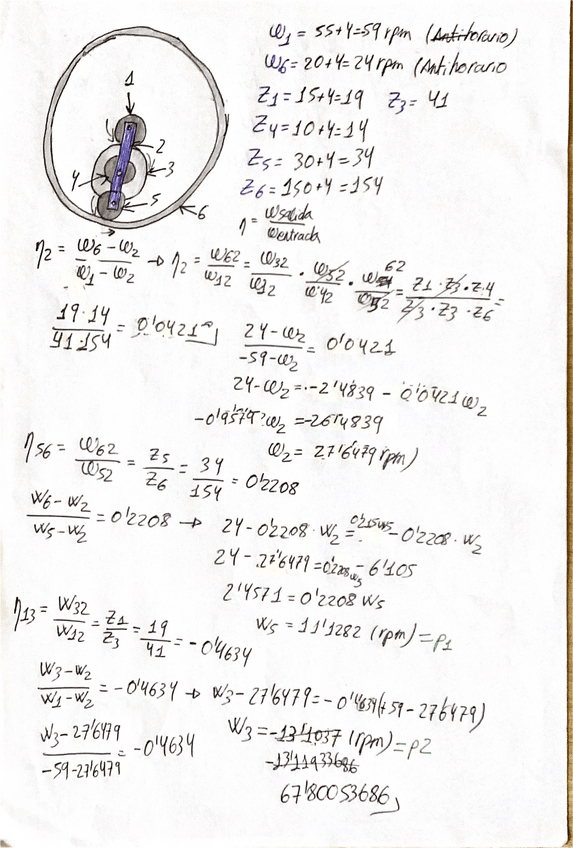 ω1 = 55+4=59 rpm (Antihorario)
ω6= 20+4=24 rpm (Antihorario
Z1=15+4=19 Z3= 41
Z4=10+4=14
Z5= 30+4=34
Z6=150+4=154
η= ωsalida / ωentrada
1
2
3
4
5
6
η2 = (ω6-ω2)/(ω1-ω2) → η2 = ω62/ω12 = ω32/ω12 · ω52/ω42 · 62/ω52 = (Z1·Z3·Z4)/(Z3·Z3·Z6) =
(19·14)/(41·154) = 0'0421 (24-ω2)/(-59-ω2) = 0'0421
24-ω2 = -2'4839 - 0'0421ω2
-0'9579·ω2 = -26'4839
ω2 = 27'6479 rpm)
η56 = ω62/ω52 = Z5/Z6 = 34/154 = 0'2208
(W6-W2)/(W5-W2) = 0'2208 → 24-0'2208·W2= -0'2208·W2
24-27'6479=0'2208W5-6'105
2'4571=0'2208 W5
W5 = 11'1282 (rpm)=P1
η13= W32/W12 = Z1/Z3 = 19/41 = -0'4634
(W3-W2)/(W1-W2) = -0'4634 → W3-27'6479=-0'4634(-59-27'6479)
(W3-27'6479)/(-59-27'6479) = -0'4634 W3=-13'1037 (rpm)=P2
-13'11933686
67'80053686